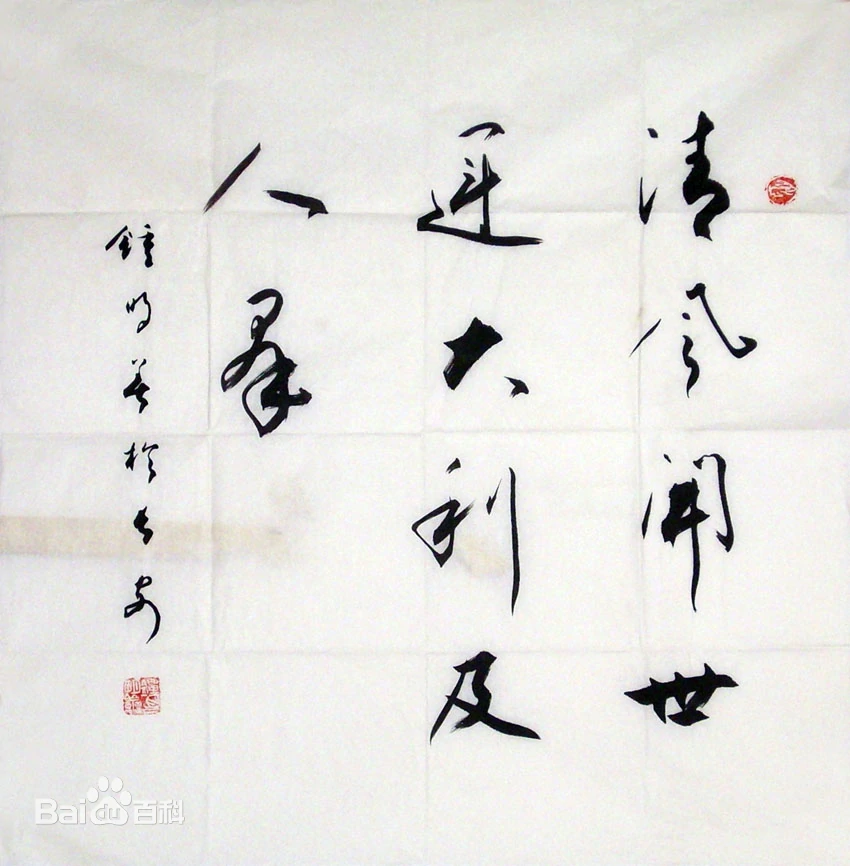 清風開世
運大利及
人羣
鍾明善於長安
Baidu百科